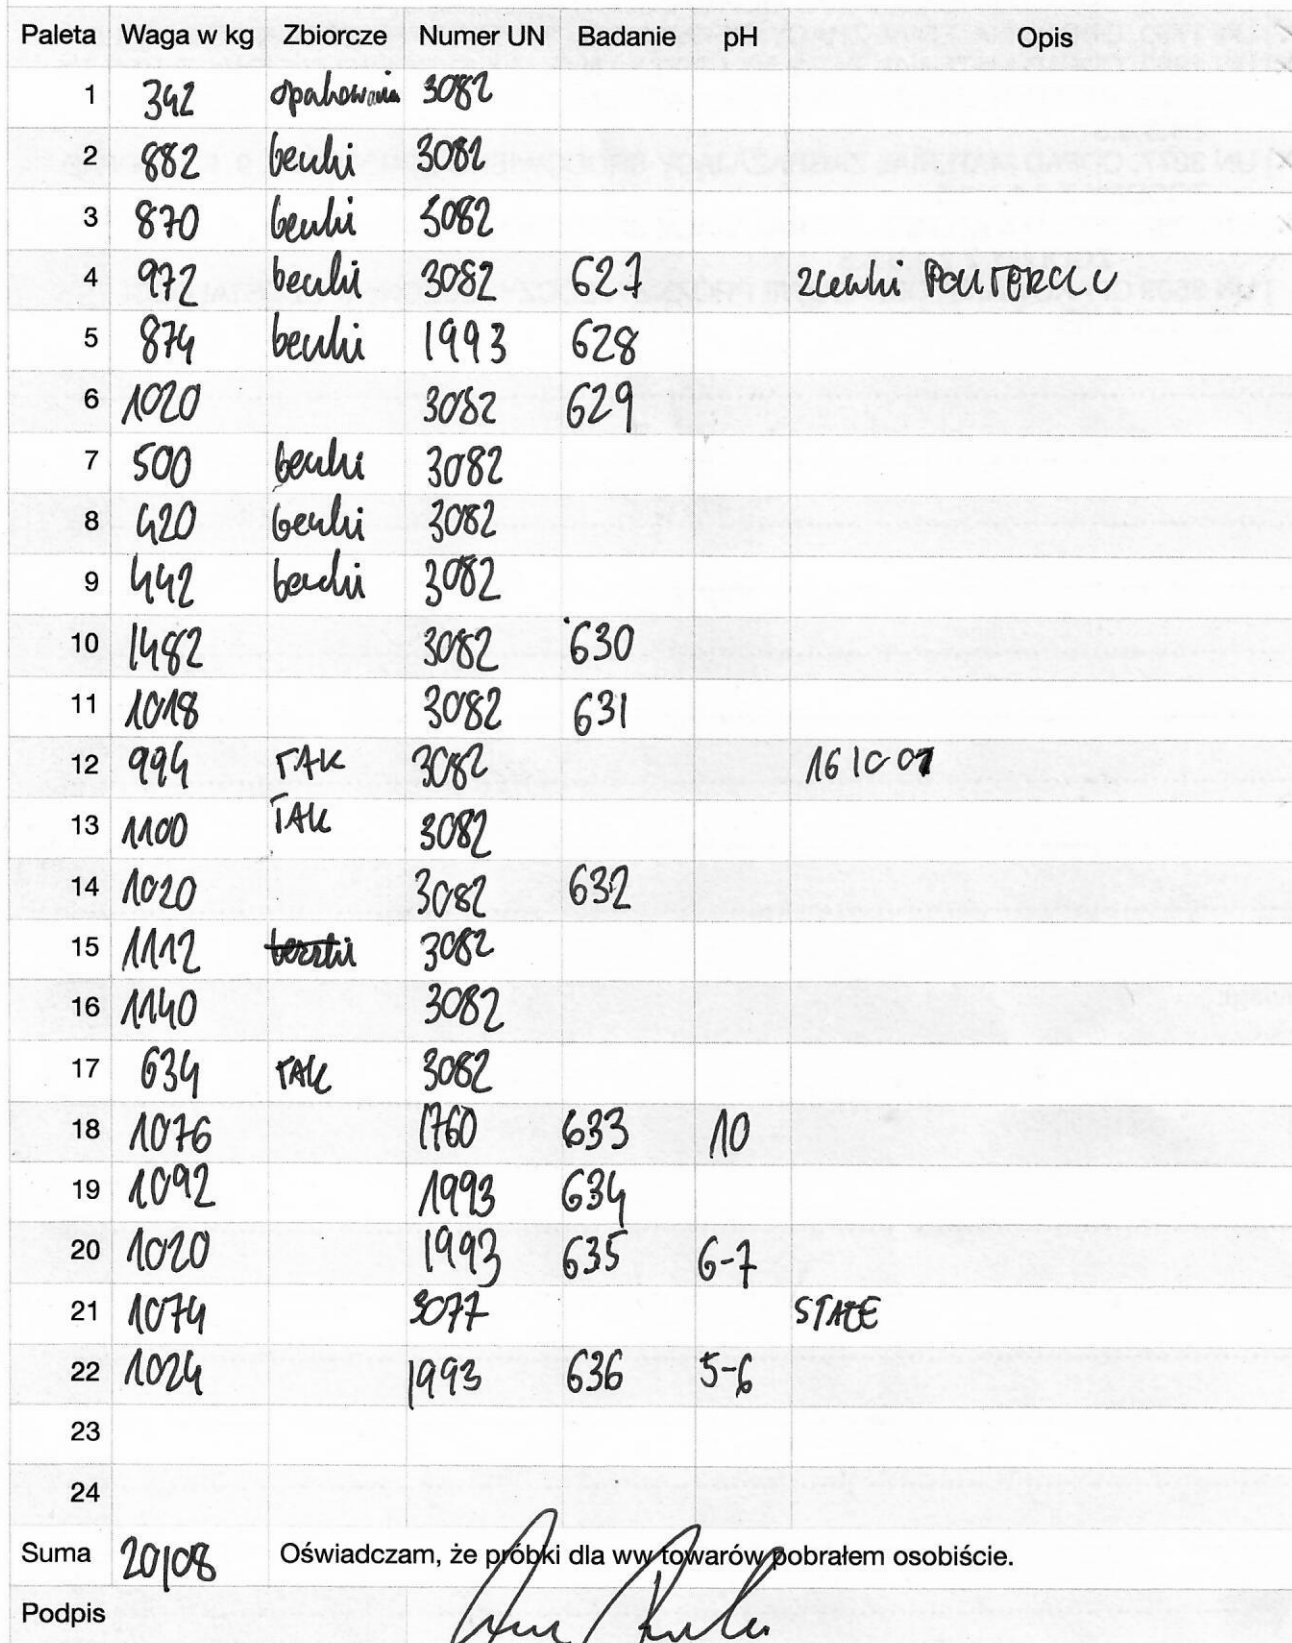 Paleta Waga w kg Zbiorcze Numer UN Badanie pH Opis
1 342 opakowania 3082
2 882 beczki 3082
3 870 beczki 3082
4 972 beczki 3082 627
5 874 beczki 1993 628
6 1020 3082 629
7 500 beczki 3082
8 420 beczki 3082
9 442 beczki 3082
10 1482 3082 630
11 1018 3082 631
12 994 TAK 3082 16 10 01
13 1100 TAK 3082
14 1020 3082 632
15 1112 3082
16 1140 3082
17 634 TAK 3082
18 1076 1760 633 10
19 1092 1993 634
20 1020 1993 635 6-7
21 1074 3077 STAŁE
22 1024 1993 636 5-6
23
24
Suma 20108 Oświadczam, że próbki dla ww towarów pobrałem osobiście.
Podpis